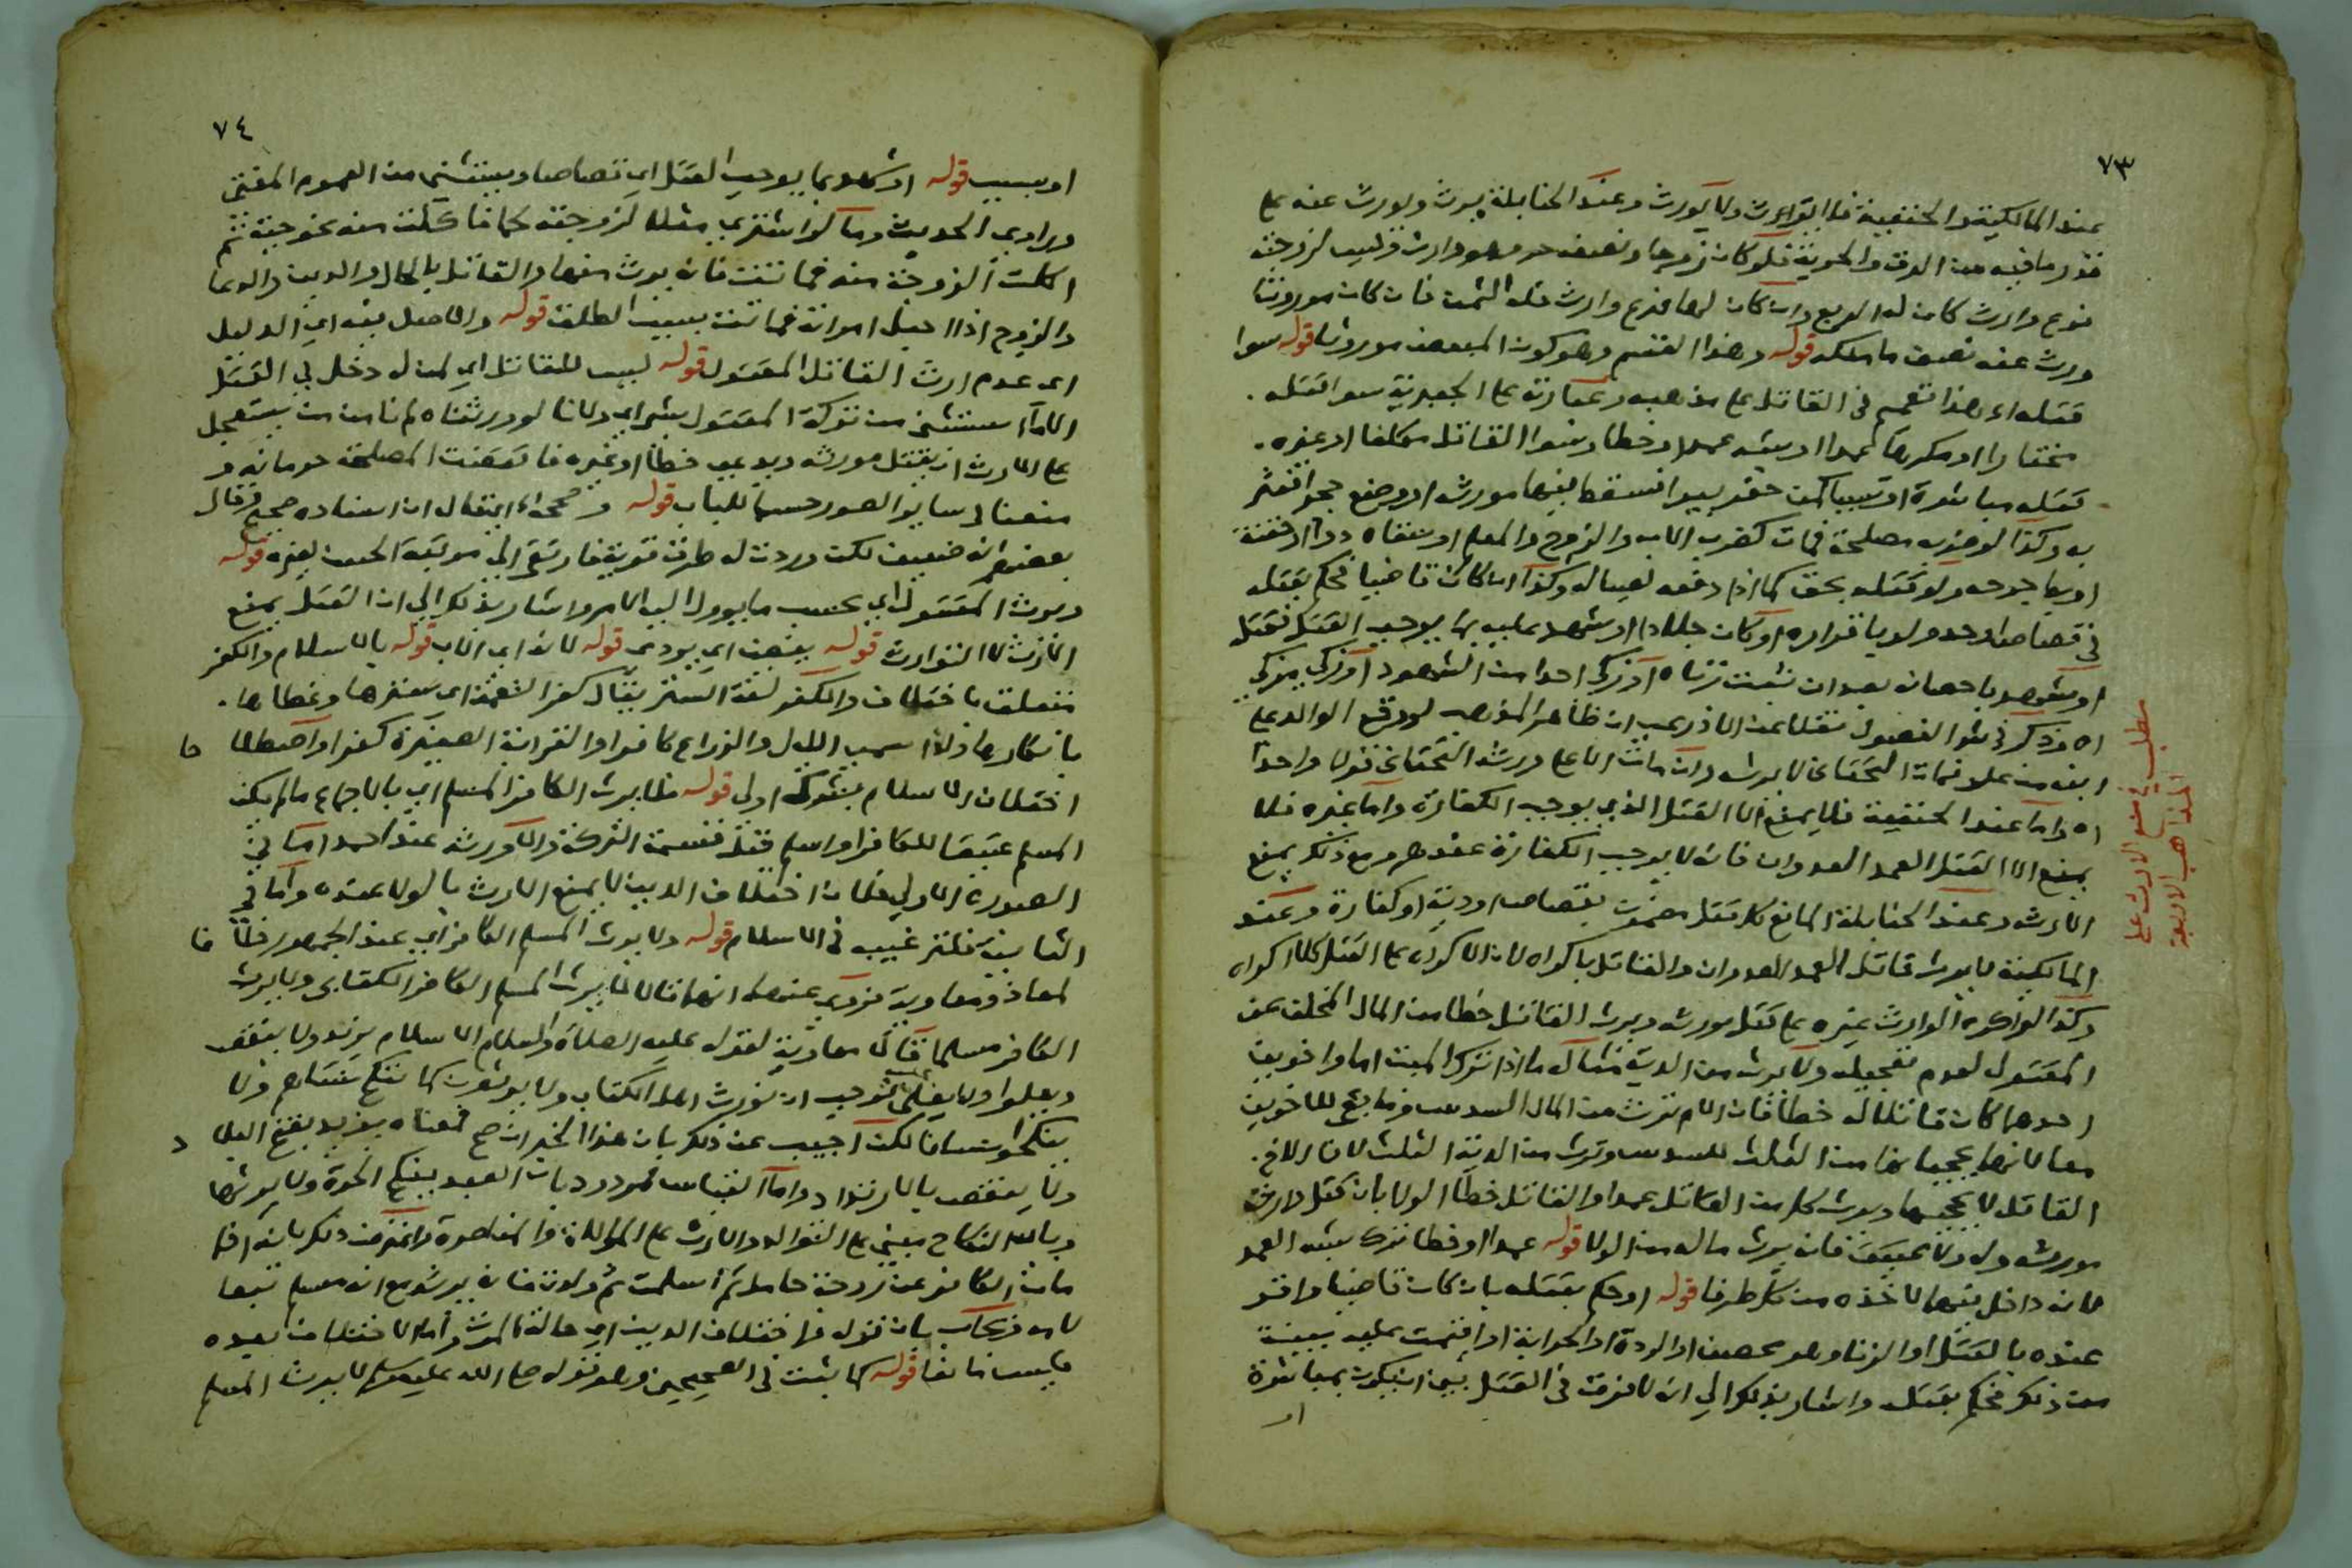 ٧٣
عند المالكية والحنفية فلا يرث ولا يورث وعند الحنابلة يرث ويورث عنه على
قدر ما فيه من الرق والحرية فلو كان زوجها ونصفه حر وهو وارث وليس لزوجته
فرع وارث كان له الربع وان كان لها فرع وارث فله الثمن فان كان موروثا
ورث عنه نصف ما ملكه قوله وهذا القسم وهو كون المبعض موروثا قوله سوا
قتله اه وهذا تعميم في القاتل على مذهبه وعبارته على سوا قتله
مختارا او مكرها عمدا او شبه عمد او خطا وسوا القاتل مكلفا او غيره
قتله مباشرة او تسببا كمن حفر بيرا فسقط فيها مورثه او وضع حجرا فتعثر
به وكذا لو ضربه مصلحة فمات كضرب الاب والزوج والمعلم او سقاه دوا او
او بط جرحه ولو قتله بحق كما اذا دفعه لصياله وكذا ان كان قاضيا فحكم بقتله
في قصاص او حد ولو باقراره او كان جلادا او شهد عليه بما يوجب القتل فقتل
او شهد باحصانه بعد ان ثبت زناه او زكى احدا من الشهود او زكى مزكي
اه وذكر في نقلا عن الاذرعي ان ظاهر المذهب لو وقع الوالد على
ابنه من علو فمات التحتاني لا يرثه وان مات الاعلى ورثه التحتاني قولا واحدا
اه واما عند الحنفية فلا يمنع الا القتل الذي يوجب الكفارة واما غيره فلا
يمنع الا القتل العمد العدوان فانه لا يوجب الكفارة عندهم ومع ذلك يمنع
الارث وعند الحنابلة المانع كل قتل مضمون بقصاص او دية او كفارة وعند
المالكية لا يرث قاتل العمد العدوان والقاتل باكراه لان الاكراه على القتل كلا اكراه
وكذا لو اكره الوارث غيره على قتل مورثه ويرث القاتل خطا من المال المخلف عن
المقتول لعدم تعجيله ولا يرث من الدية مثاله ما اذا ترك الميت اما واخوين
احدهما كان قاتلا له خطا فان الام ترث من المال السدس وما بقي للاخوين
معا لانهما يحجبانها من الثلث للسدس وترث من الدية الثلث لان الاخ
القاتل لا يحجبها ويرث كل من القاتل عمدا والقاتل خطا الولا بان قتل
مورثه وله ولا عتيق فانه يرث ماله من الولا قوله عمدا او خطا ترك شبه العمد
لانه داخل فيهما لاخذه من كل طرفا قوله او حكم بقتله بان كان قاضيا واقر
عنده بالقتل او الزنا وهو محصن او الردة او الحرابة او اقيمت عليه بينة
من ذلك فحكم بقتله واشار بذلك الى انه لا فرق في القتل بين ان يكون بمباشرة
او
مطلب في منع الارث على
المذاهب الاربعة
٧٤
او بسبب قوله او شهد بما يوجب القتل اي قصاصا ويستثنى من العموم المفتي
وراوي الحديث وما لو اشترى مثلا لزوجته لحما فاكلت منه حية ثم
اكلت الزوجة منه فماتت فانه يرث منها والقاتل بالحال والعين والدعا
والزوج اذا احبل امراته فماتت بسبب الطلق قوله والاصل فيه اي الدليل
اي عدم ارث القاتل المقتول قوله ليس للقاتل اي لمن له دخل في القتل
الا ما استثني من تركة المقتول شي اي ولانا لو ورثناه لم نامن من يستعجل
على الارث ان يقتل مورثه ويدعي خطا او غيره فاقتضت المصلحة حرمانه و
منعناه سائر الصور حسما للباب قوله وصححه اه يقال ان اسناده صحيح وقال
بعضهم انه ضعيف لكن وردت له طرق تقويه فارتقى الى مرتبة الحسن لغيره قوله
ويرث المقتول اي بحسب ما يوول اليه الامر واشار بذلك الى ان القتل يمنع
الارث لا التوارث قوله يفضي اي يودي قوله لانه اي الاب قوله بالاسلام والكفر
متعلق باختلاف والكفر لغة الستر يقال كفر النعمة اي سترها وغطاها
بانكارها ولذا سمي الليل والزراع كافرا والقرية الصغيرة كفرا واصطلا حا
اختلاف الاسلام اولى قوله فلا يرث الكافر المسلم اي بالاجماع ما لم يكن
المسلم عتيقا للكافر او اسلم قبل قسمة التركة والا ورثه عند احمد اما في
الصورة الاولى فلان اختلاف الدين لا يمنع الارث بالولا عنده واما في
الثانية فللترغيب في الاسلام قوله ولا يرث المسلم الكافر اي عند الجمهور خلا فا
لمعاذ ومعاوية فروي عنهما انهما قالا يرث المسلم الكافر الكتابي ولا يرث
الكافر مسلما قال معاوية لقوله عليه الصلاة والسلام الاسلام يزيد ولا ينقص
ويعلوا ولا يعلى فوجب ان نورث اهل الكتاب ولا يورثون كما ننكح نساهم ولا
ينكحوا نسانا لكن اجيب عن ذلك بان هذا الخبر ان صح فمعناه يزيد بفتح البلا د
ولا ينقص بالارتداد واما القياس فمردود بان العبد ينكح الحرة ولا يرثها
وبان النكاح مبني على التوالد والارث على الموالاة والمناصرة واعترض ذلك بانه اذا
مات الكافر عن زوجة حامل ثم اسلمت ثم ولدت فانه يرثه مع انه مسلم تبعا
لامه ويجاب بان قوله اختلاف الدين اي حالة الموت واما الاختلاف بعده
فليس مانعا قوله كما ثبت في الصحيحين وهو قوله صلى الله عليه وسلم لا يرث المسلم